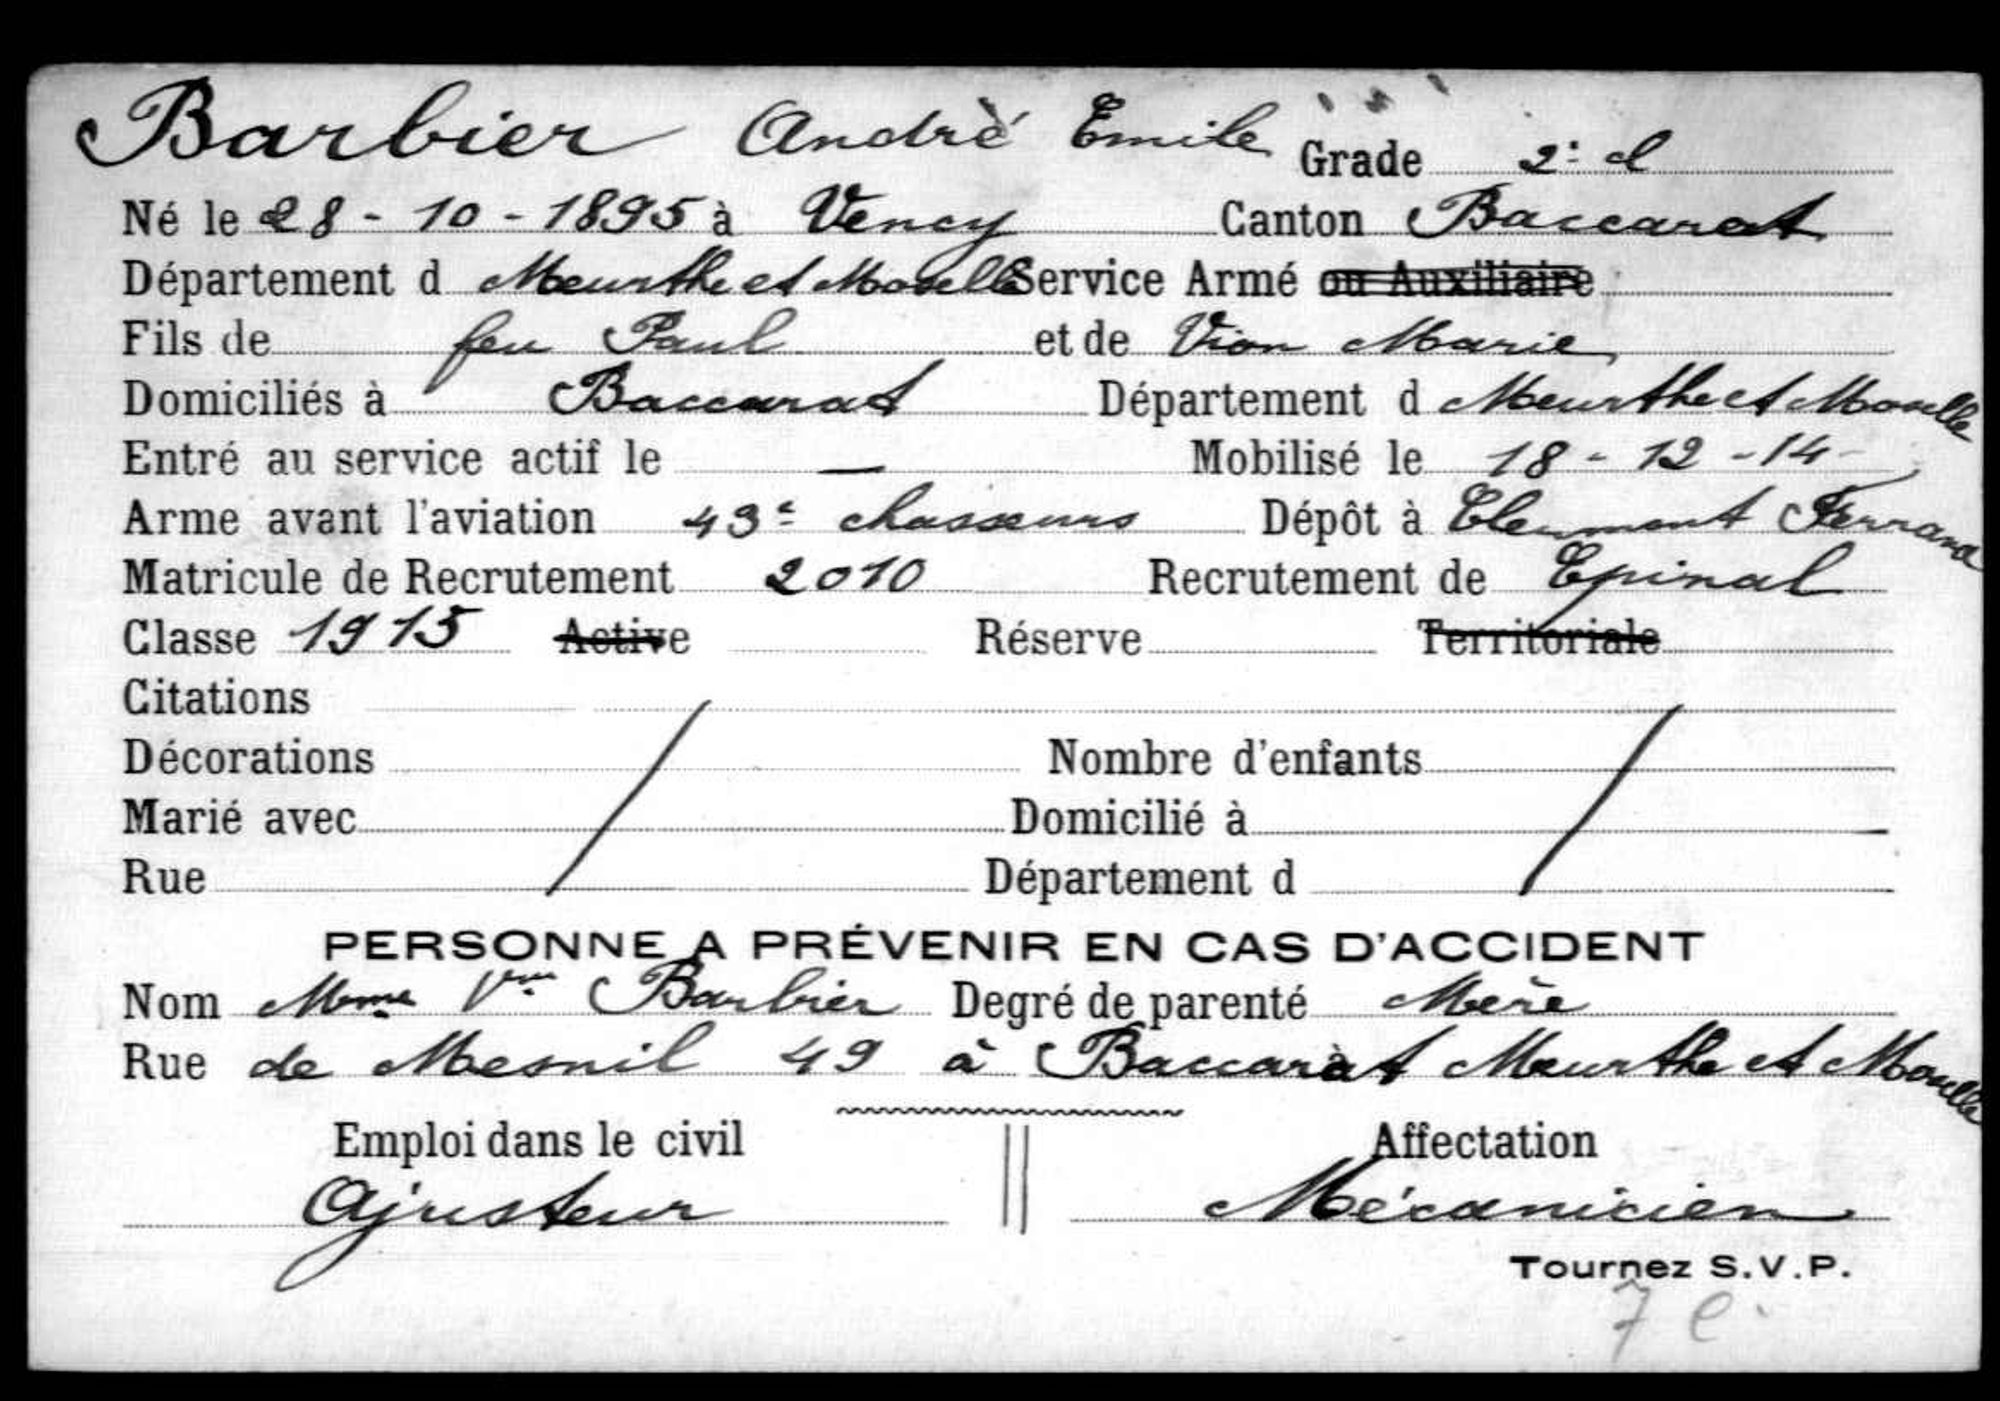 Barbier André Emile Grade 2e cl
Né le 28 - 10 - 1895 à Vency Canton Baccarat
Département d Meurthe et Moselle Service Armé ou Auxiliaire
Fils de feu Paul et de Vion Marie
Domiciliés à Baccarat Département d Meurthe et Moselle
Entré au service actif le — Mobilisé le 18 - 12 - 14
Arme avant l'aviation 43e chasseurs Dépôt à Clermont Ferrand
Matricule de Recrutement 2010 Recrutement de Epinal
Classe 1915 Active Réserve Territoriale
Citations
Décorations Nombre d'enfants
Marié avec Domicilié à
Rue Département d
PERSONNE A PRÉVENIR EN CAS D'ACCIDENT
Nom Mme Vve Barbier Degré de parenté Mère
Rue de Mesnil 49 à Baccarat Meurthe et Moselle
Emploi dans le civil Affectation
Ajusteur Mécanicien
Tournez S.V.P.
7 e